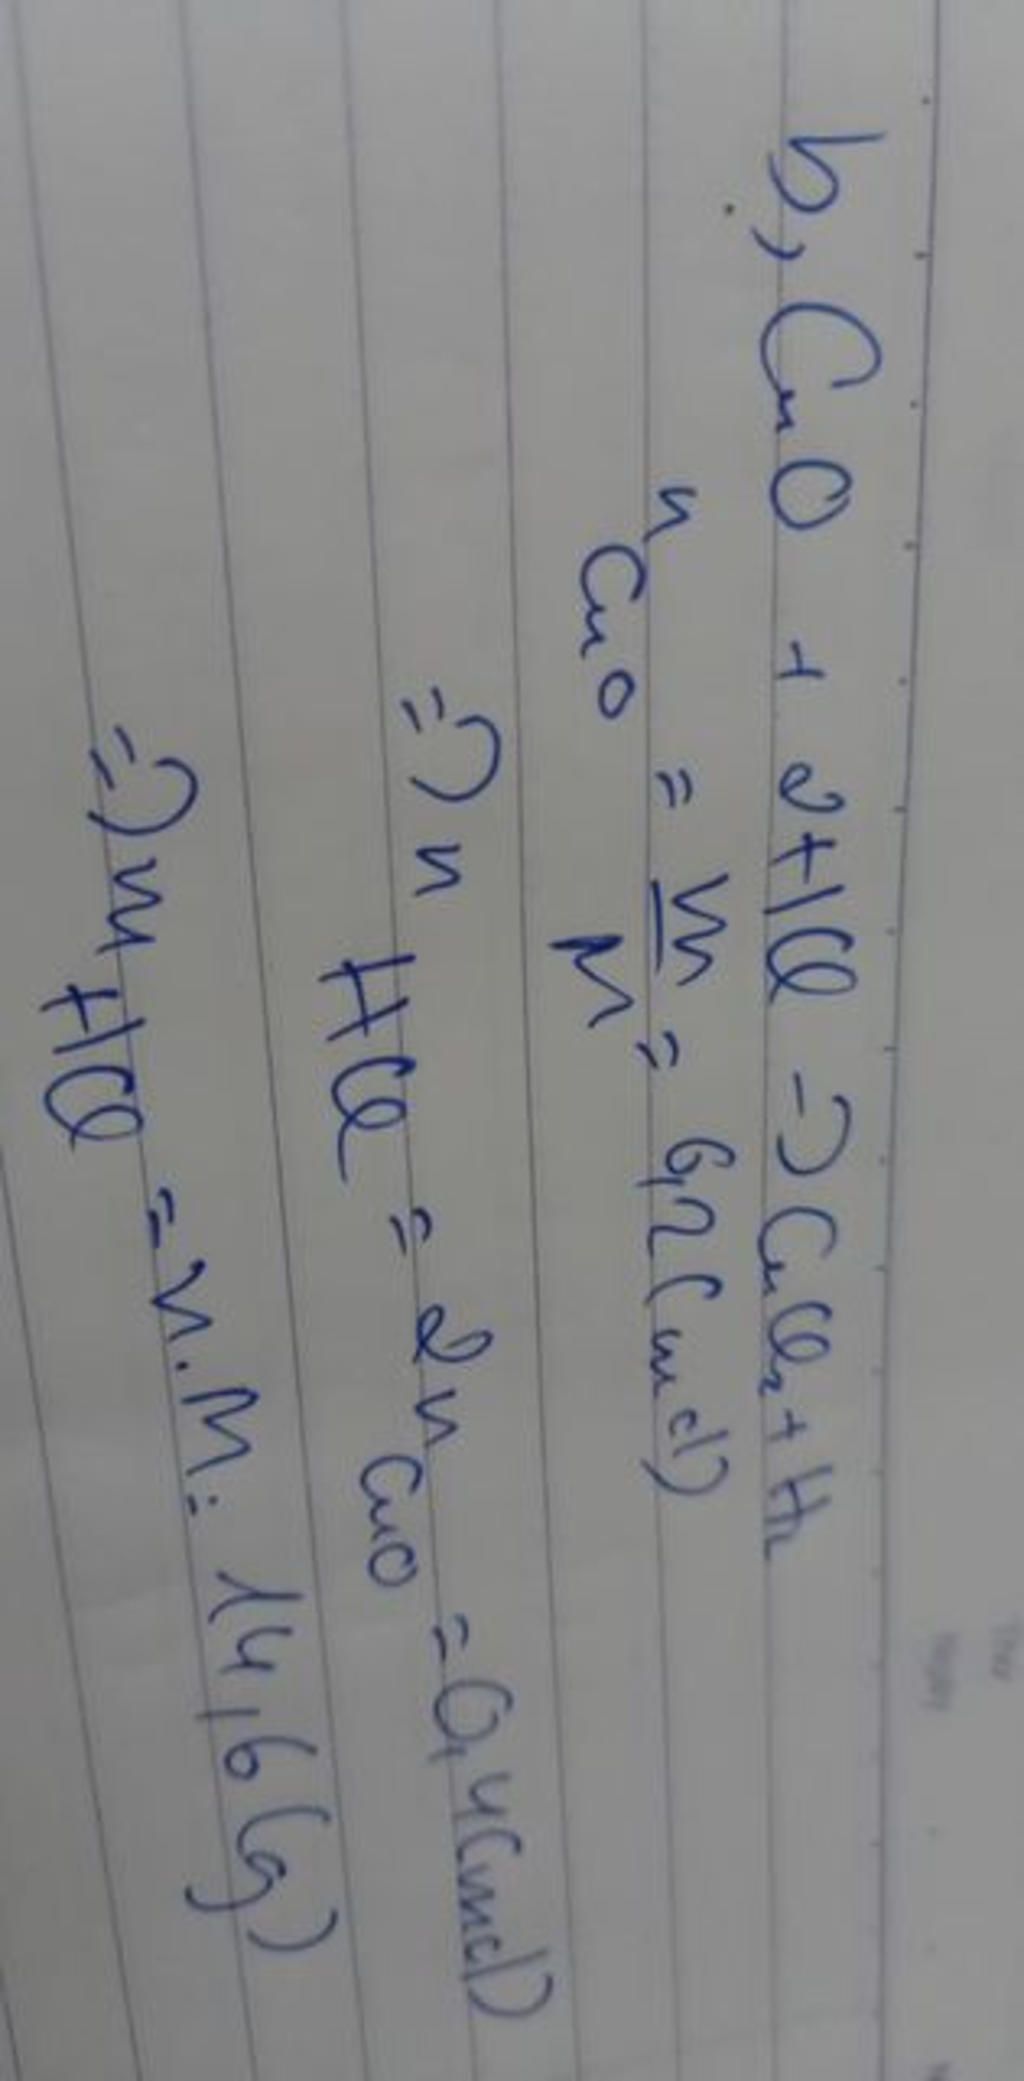 b, CuO + 2HCl -> CuCl2 + H2
nCuO = m/M = 0,2 (mol)
=> nHCl = 2nCuO = 0,4 (mol)
=> mHCl = n.M = 14,6 (g)